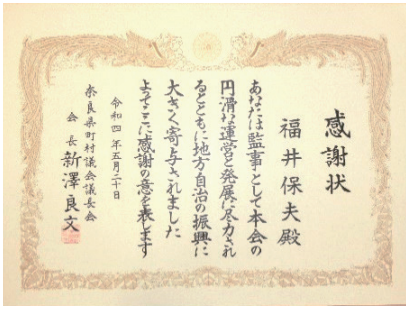 感謝状
福井保夫殿
あなたは監事として本会の
円滑な運営と発展に尽力され
るとともに地方自治の振興に
大きく寄与されました
よってここに感謝の意を表します
令和四年五月二十日
奈良県町村議会議長会
会長 新澤良文